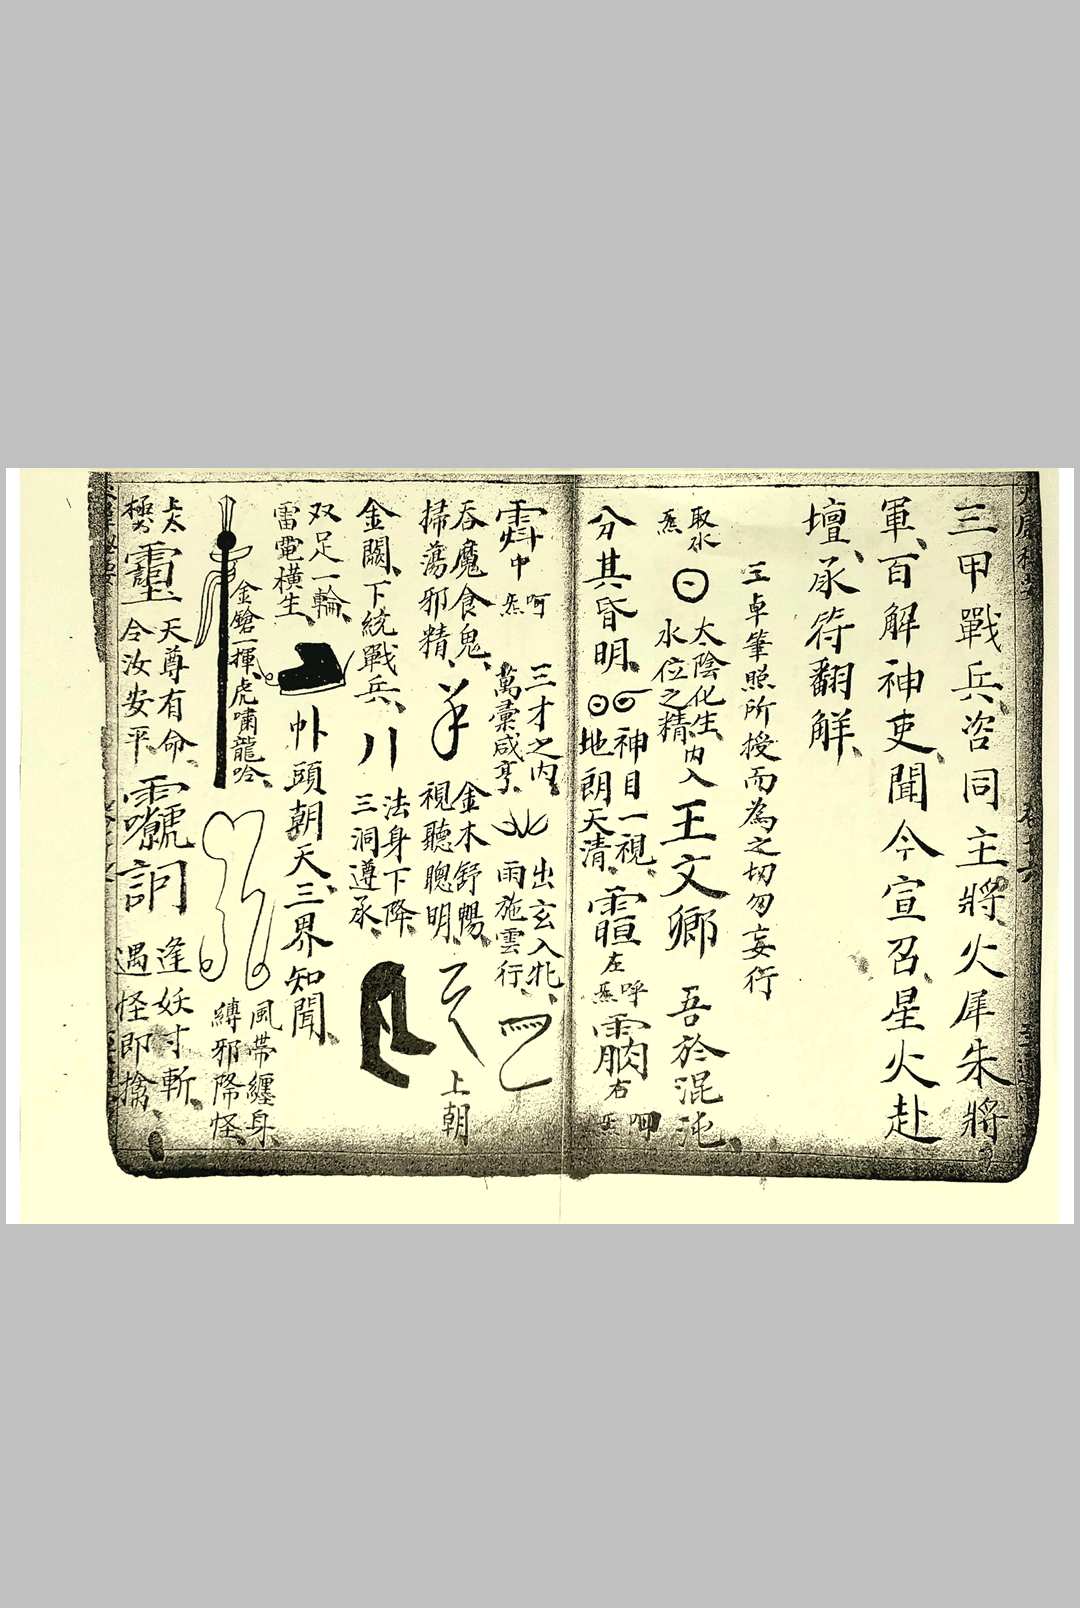 三甲戰兵咨同主將火犀朱將
軍百解神吏聞今宣召星火赴
壇承符翻解
卓筆照所授而為之切勿妄行
取水
炁
太陰化生內入
水位之精
王文卿
吾於混沌
分其昏明
神目一視
地朗天清
左
呼
炁
右
呵
炁
中
呵
炁
三才之內
萬彙咸亨
出玄入牝
雨施雲行
吞魔食鬼
掃蕩邪精
金木舒暢
視聽聰明
上朝
金闕下統戰兵
法身下降
三洞遵承
双足一輪
雷電橫生
卟頭朝天三界知聞
金鎗一揮
虎嘯龍吟
風帶纏身
縛邪降怪
上太
極勺
天尊有命
令汝安平
訶
逢妖寸斬
遇怪即擒